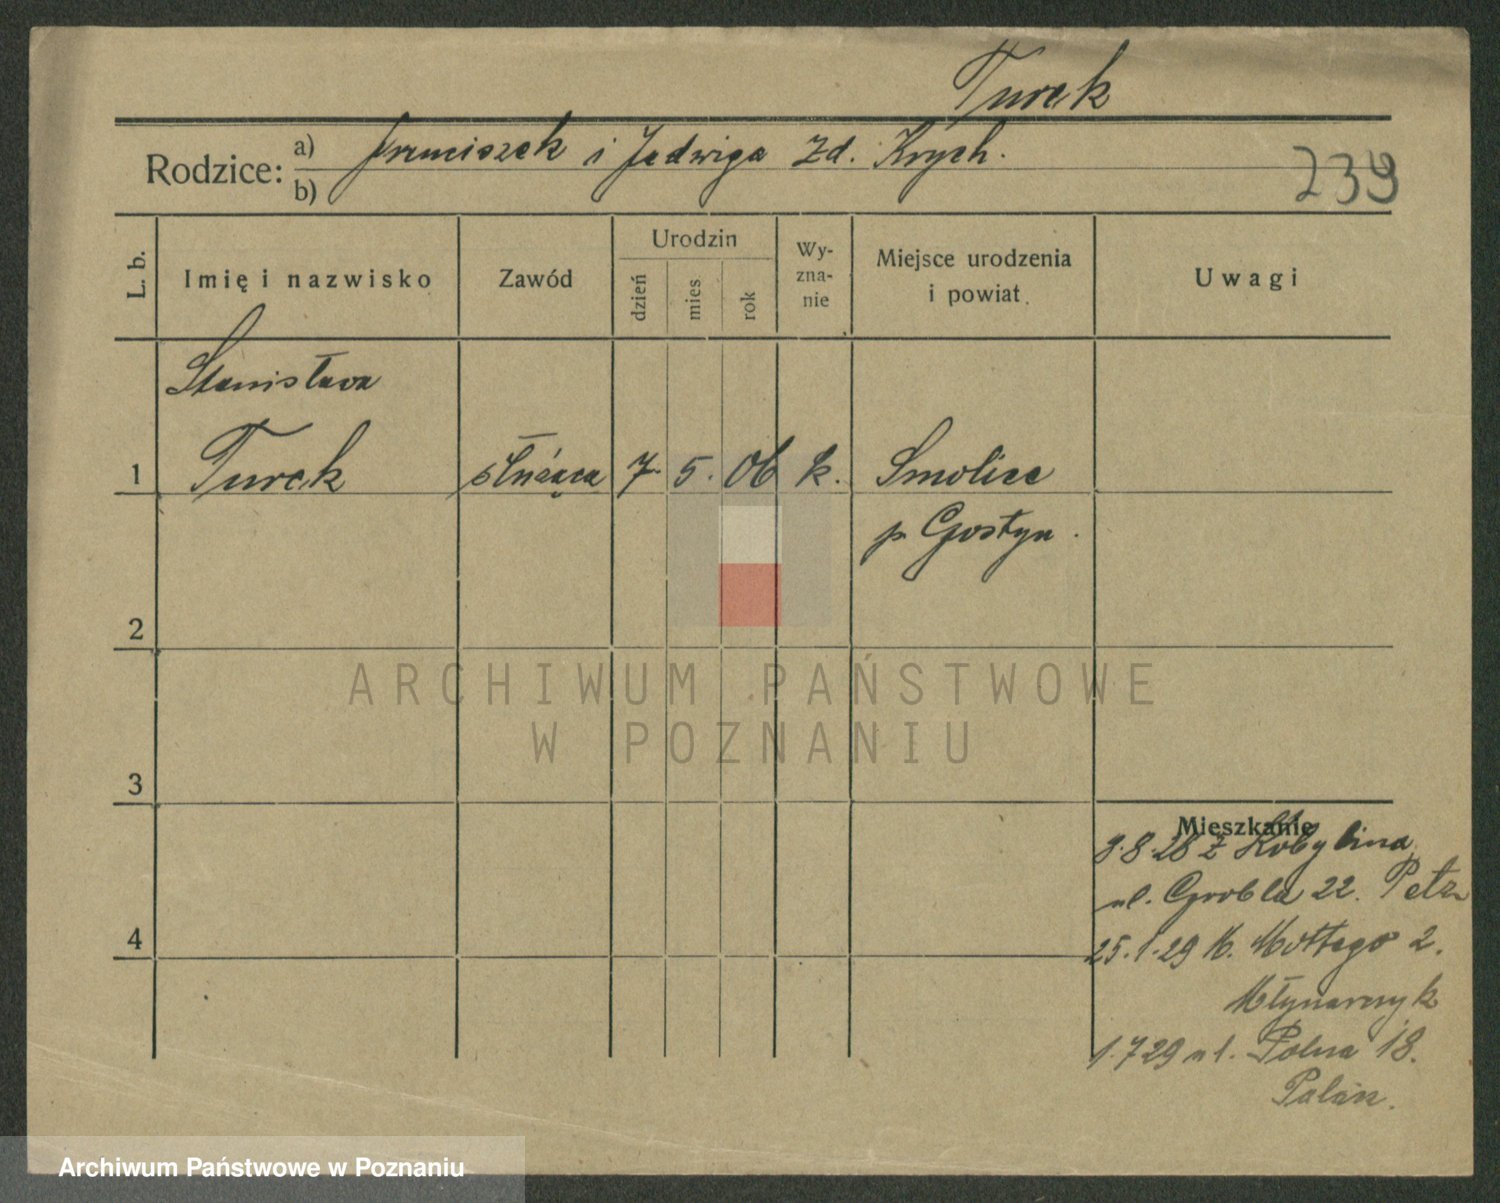 Turek
Rodzice: a) Franciszek i Jadwiga zd. Krych.
b)
239
L. b.
Imię i nazwisko
Zawód
Urodzin
dzień
mies
rok
Wy-
zna-
nie
Miejsce urodzenia
i powiat.
Uwagi
Stanisława
1 Turek służąca 7. 5. 06 k. Smolice
p. Gostyn.
2
ARCHIWUM PAŃSTWOWE
W POZNANIU
3
Mieszkanie
9.8.28 z Kobylina
ul. Grobla 22. Petz
4
25.1.29 M. Mottego 2.
Młynarczyk
1.7 29 ul. Polna 18.
Archiwum Państwowe w Poznaniu